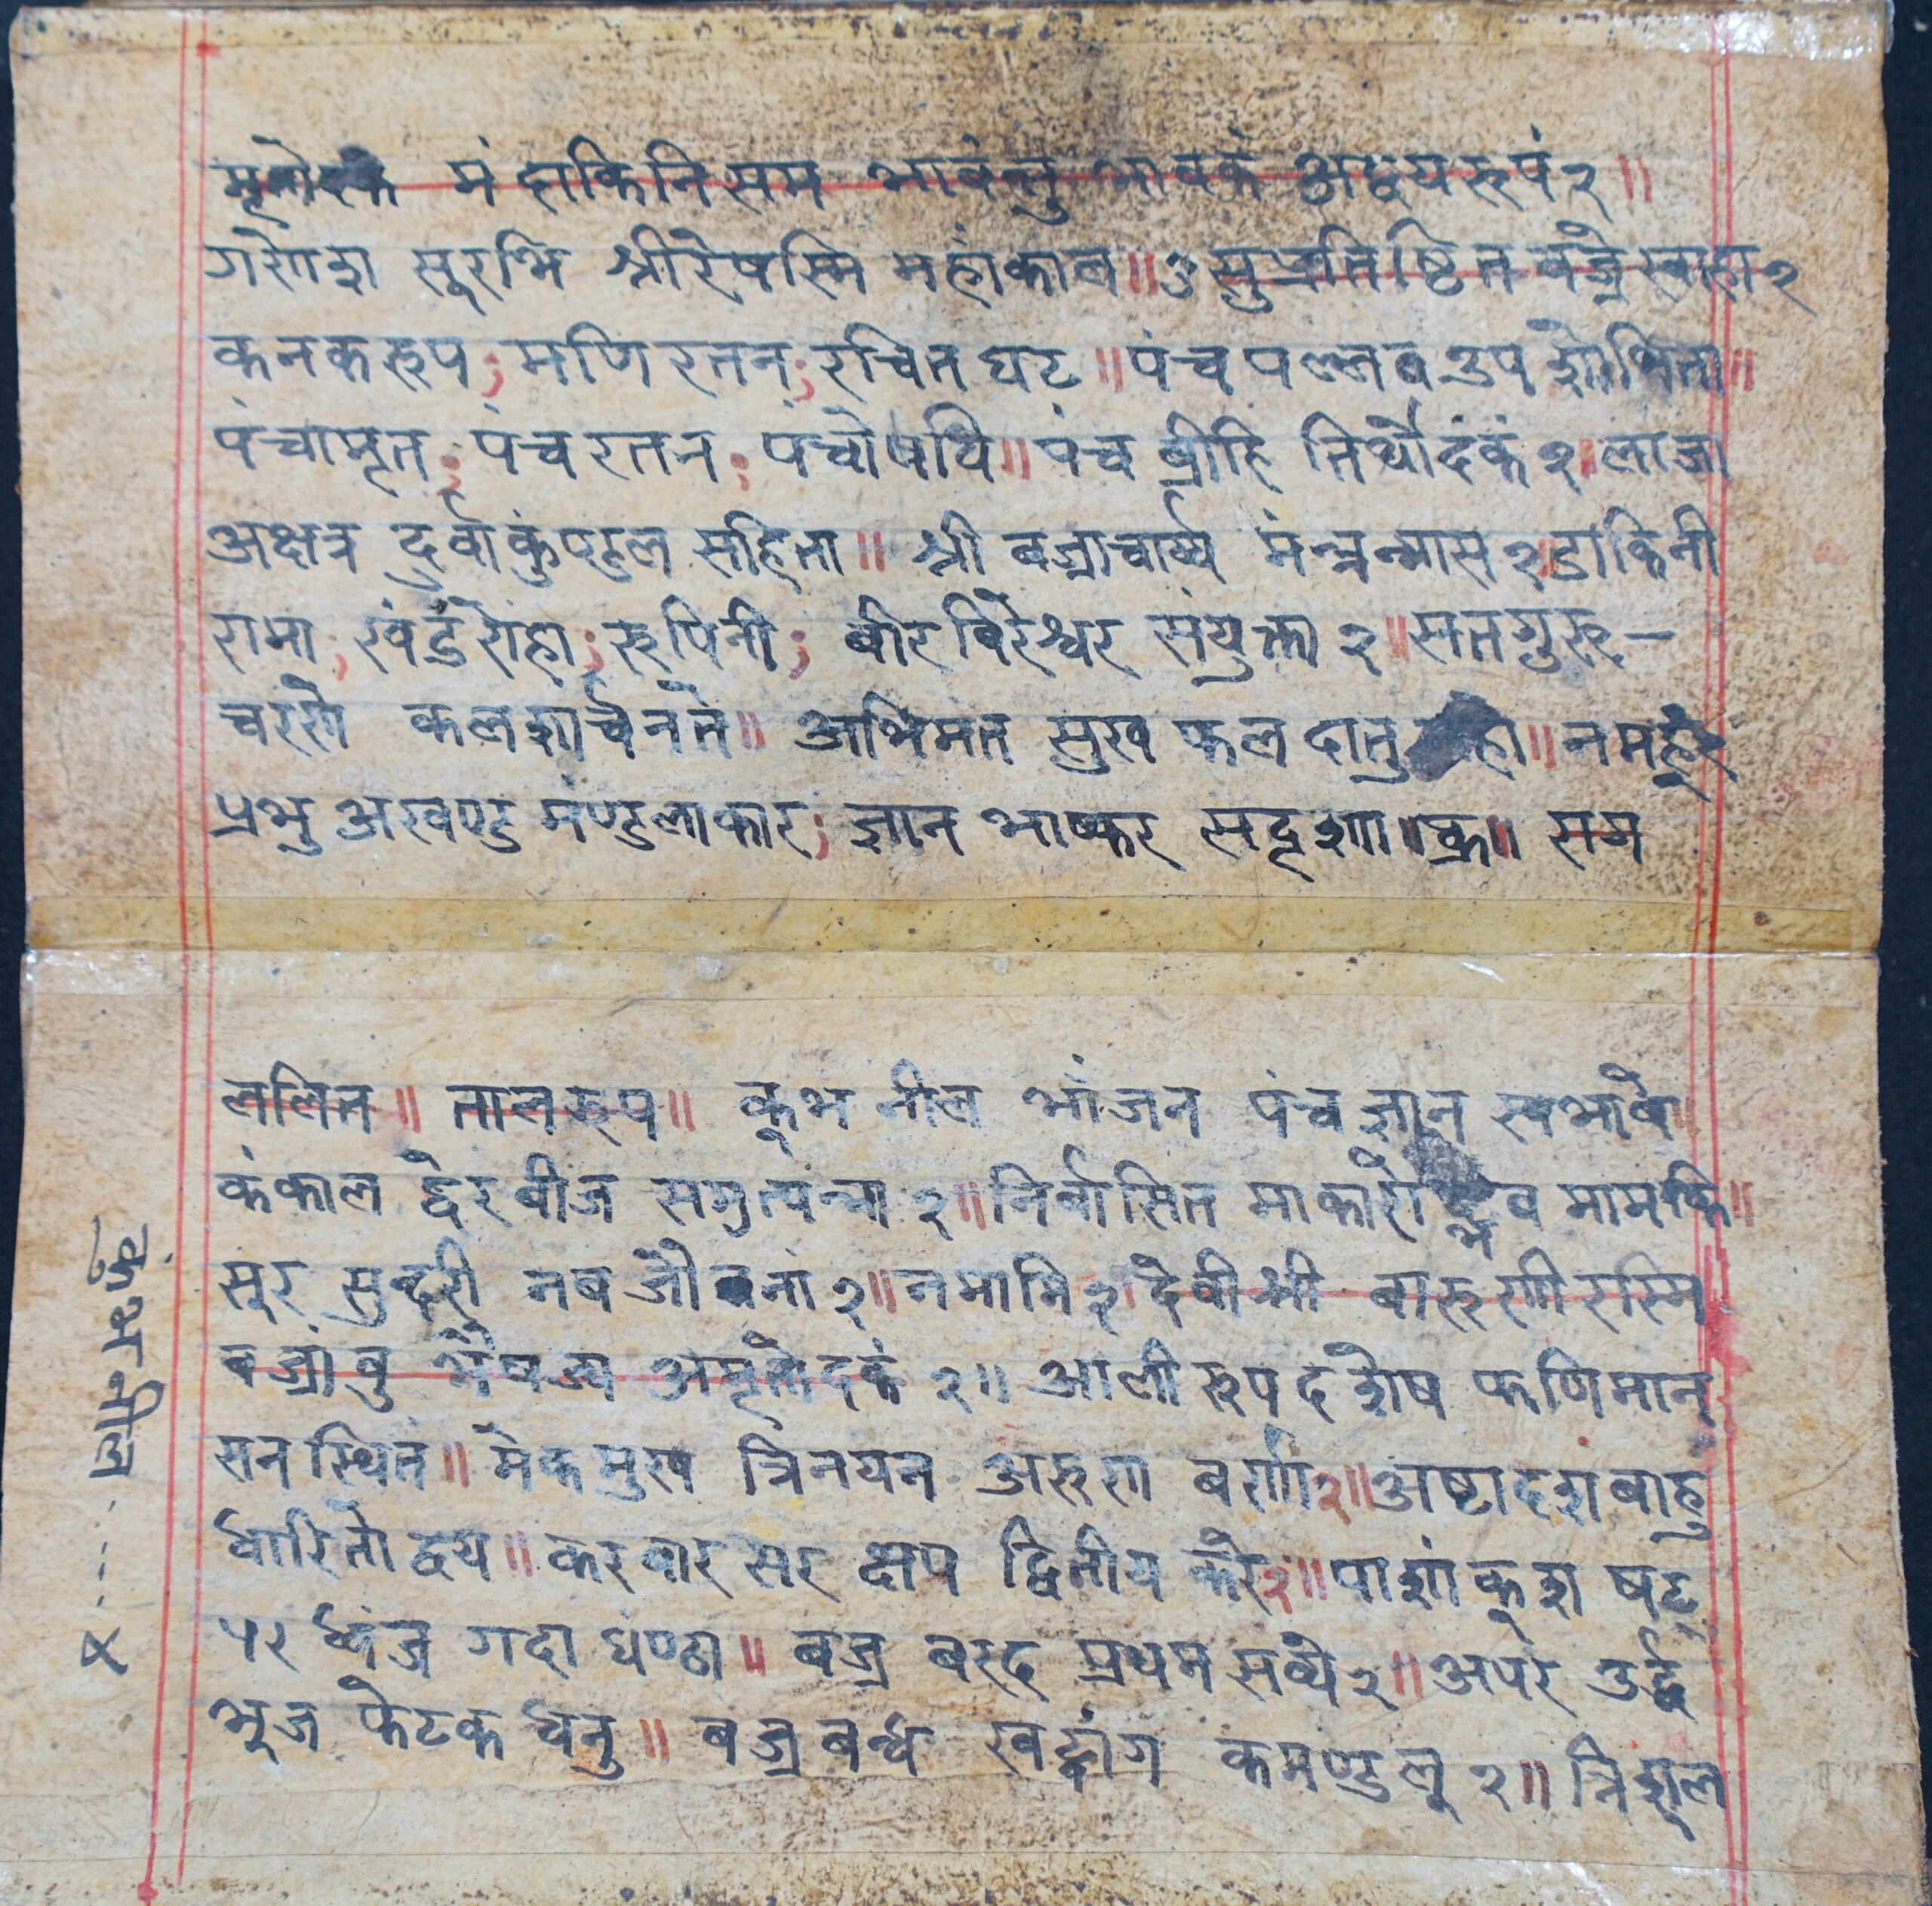 मंदाकिनि सम भावंन्तु भावकं अद्वयरुपं २॥
गरोश सुरभि श्रीरेषस्मि महांकाल॥ ३ सुप्रतिष्ठित बज्रे स्वाहा २
कनकरुप; मणि रतन; रचित घट॥ पंच पल्लव उपशोभिता॥
पंचामृत; पंच रतन; पंचोषधि॥ पंच ब्रीहि तिर्थोदंकं २॥ लाजा
अक्षत्र दुर्वाकुंण्डल सहिता॥ श्री बज्राचार्य्य मंन्त्रन्यास २ डाकिनी
रामा; खंडंरोहा; रुपिनी; बीर बिरेश्वर संयुक्ता २॥ सतगुरु-
चररो कलशार्चनते॥ अभिमत सुख फल दातु हो॥ नमहूँ २
प्रभु अखण्ड मंण्डलाकार; ज्ञान भाष्कर सदृशा॥ क्र॥ सग
ललित॥ तालरुप॥ कूभ नील भांजन पंच ज्ञान स्वभावे॥
कंकाल द्वेरबीज समुत्पंन्ना २॥ निर्वासित माकारोद्भव मामकि॥
सुर सुन्दरी नब जौबनां २॥ नमामि २ देवी श्री बारुराी रस्मि
बज्रांबु भैषज्य अमृतोदकं २॥ आली रुपद शेष फणिमान्
सन स्थित॥ मेकमुख त्रिनयन अरुरा बर्रा २॥ अष्टादश बाहु
धारितो द्वय॥ करबार सर क्षप द्वितीय करे २॥ पाशांकूश षट्
पर ध्वंज गदा घंण्ठा॥ बज्र बरद प्रथम सव्ये २॥ अपर उर्द्ध
भूज फेटक धनु॥ बज्र बन्ध खट्वांग कंमण्डलू २॥ त्रिशूल
कुंभ नील ..... ४